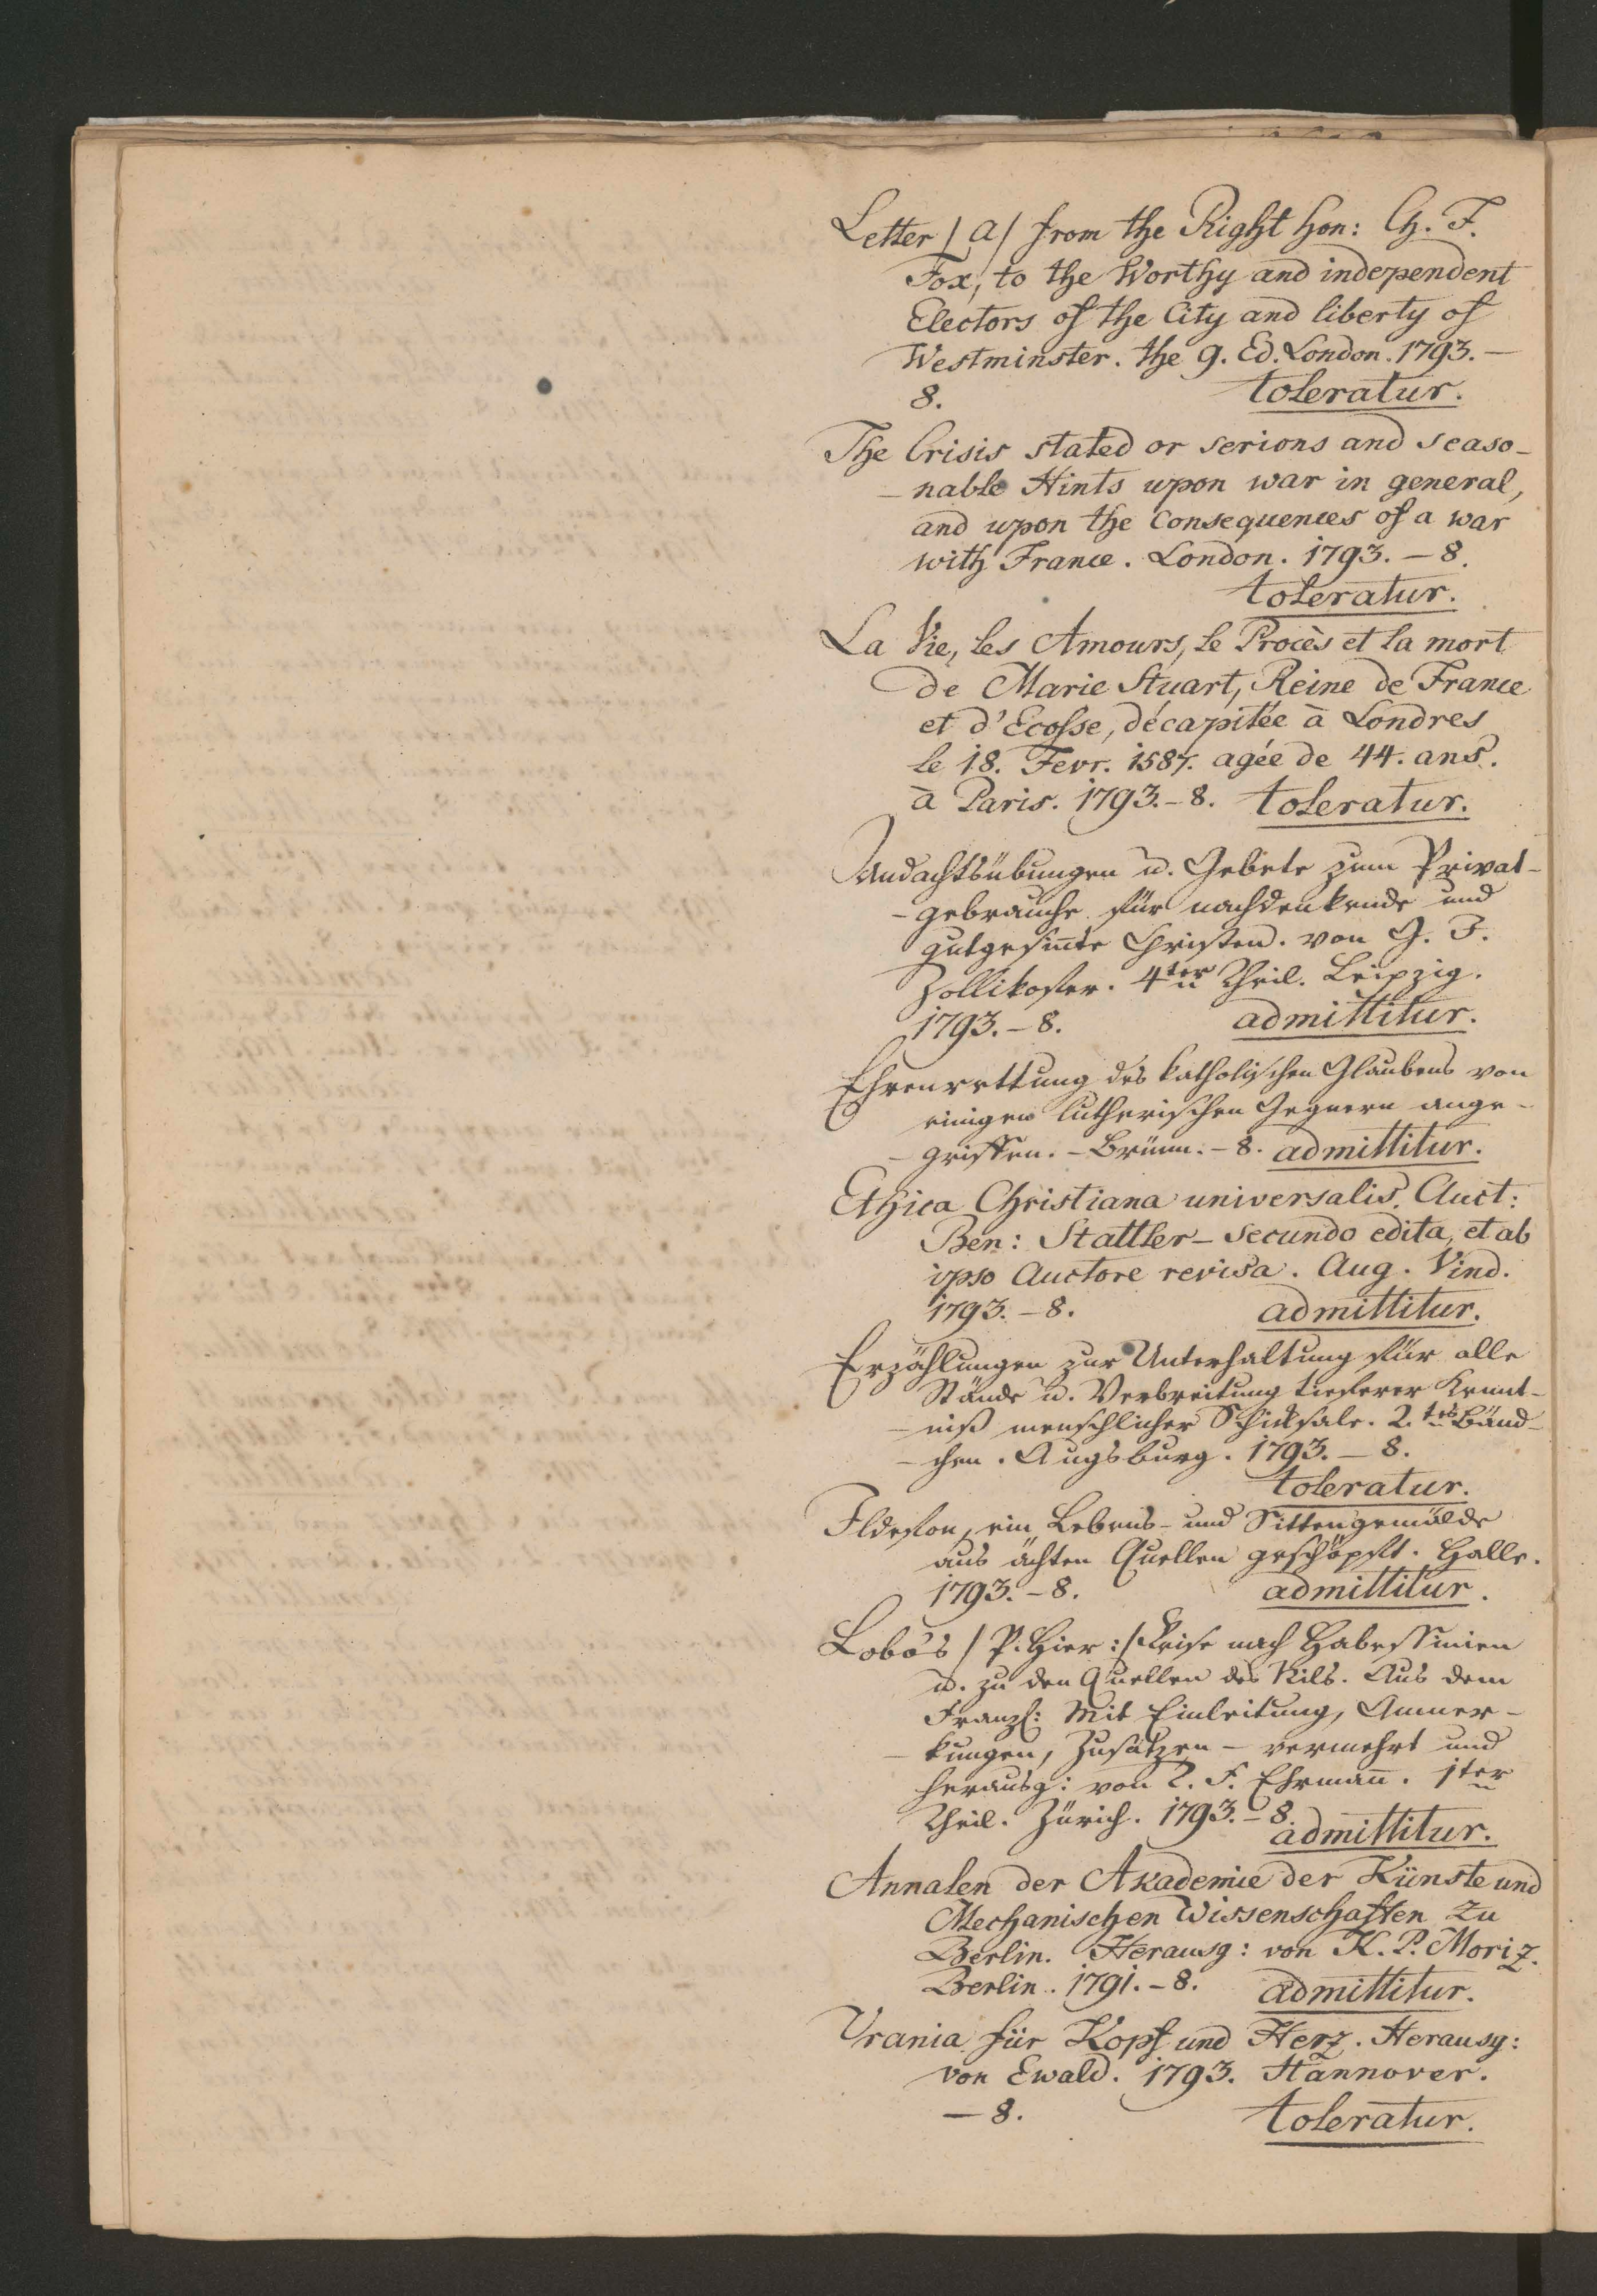 Letter / a / from the Right hon: Ch. F.
Fox, to the Worthy and independent
Electors of the City and liberty of
Westminster. the 9. Ed. London. 1793. –
8. toleratur.
The Crisis stated or serions and seaso-
- nable Hints upon war in general,
and upon the Consequences of a war
with France. London. 1793. – 8.
toleratur.
La Vie, les Amours, le Procès et la mort
de Marie Stuart, Reine de France
et d'Ecosse, décapitée à Londres
le 18. Fevr. 1587. agée de 44. ans.
à Paris. 1793. – 8. toleratur.
Andachtsübungen u. Gebete zum Privat-
- gebrauche für nachdenkende und
gutgesin̄te Christen. von G. J.
Zollikofer. 4ter Theil. Leipzig.
1793. – 8. admittitur.
Ehrenrettung des katholischen Glaubens von
einigen lutherischen Gegnern ange-
- griffen. – Brünn. – 8. admittitur.
Ethica Christiana universalis. Auct:
Ben: Stattler – secundo edita, et ab
ipso Auctore revisa. Aug. Vind.
1793. – 8. admittitur.
Erzählungen zur Unterhaltung für alle
Stände u. Verbreitung tieferer Kennt-
- niß menschlicher Schicksale. 2.tes Bänd-
- chen. Augsburg. 1793. – 8.
toleratur.
Ildefon, ein Lebens- und Sittengemälde
aus ächten Quellen geschöpft. Halle.
1793. – 8. admittitur.
Lobo's / P. Hier: / Reise nach Habessinien
u. zu den Quellen des Nils. Aus dem
Franz: Mit Einleitung, Anmer-
- kungen, Zusätzen – vermehrt und
herausg: von T. F. Ehrman̄. 1ter
Theil. Zürich. 1793. – 8.
admittitur.
Annalen der Akademie der Künste und
Mechanischen Wissenschaften zu
Berlin. Herausg: von K. P. Moriz.
Berlin. 1791. – 8. admittitur.
Urania für Kopf und Herz. Herausg:
von Ewald. 1793. Hannover.
– 8. toleratur.